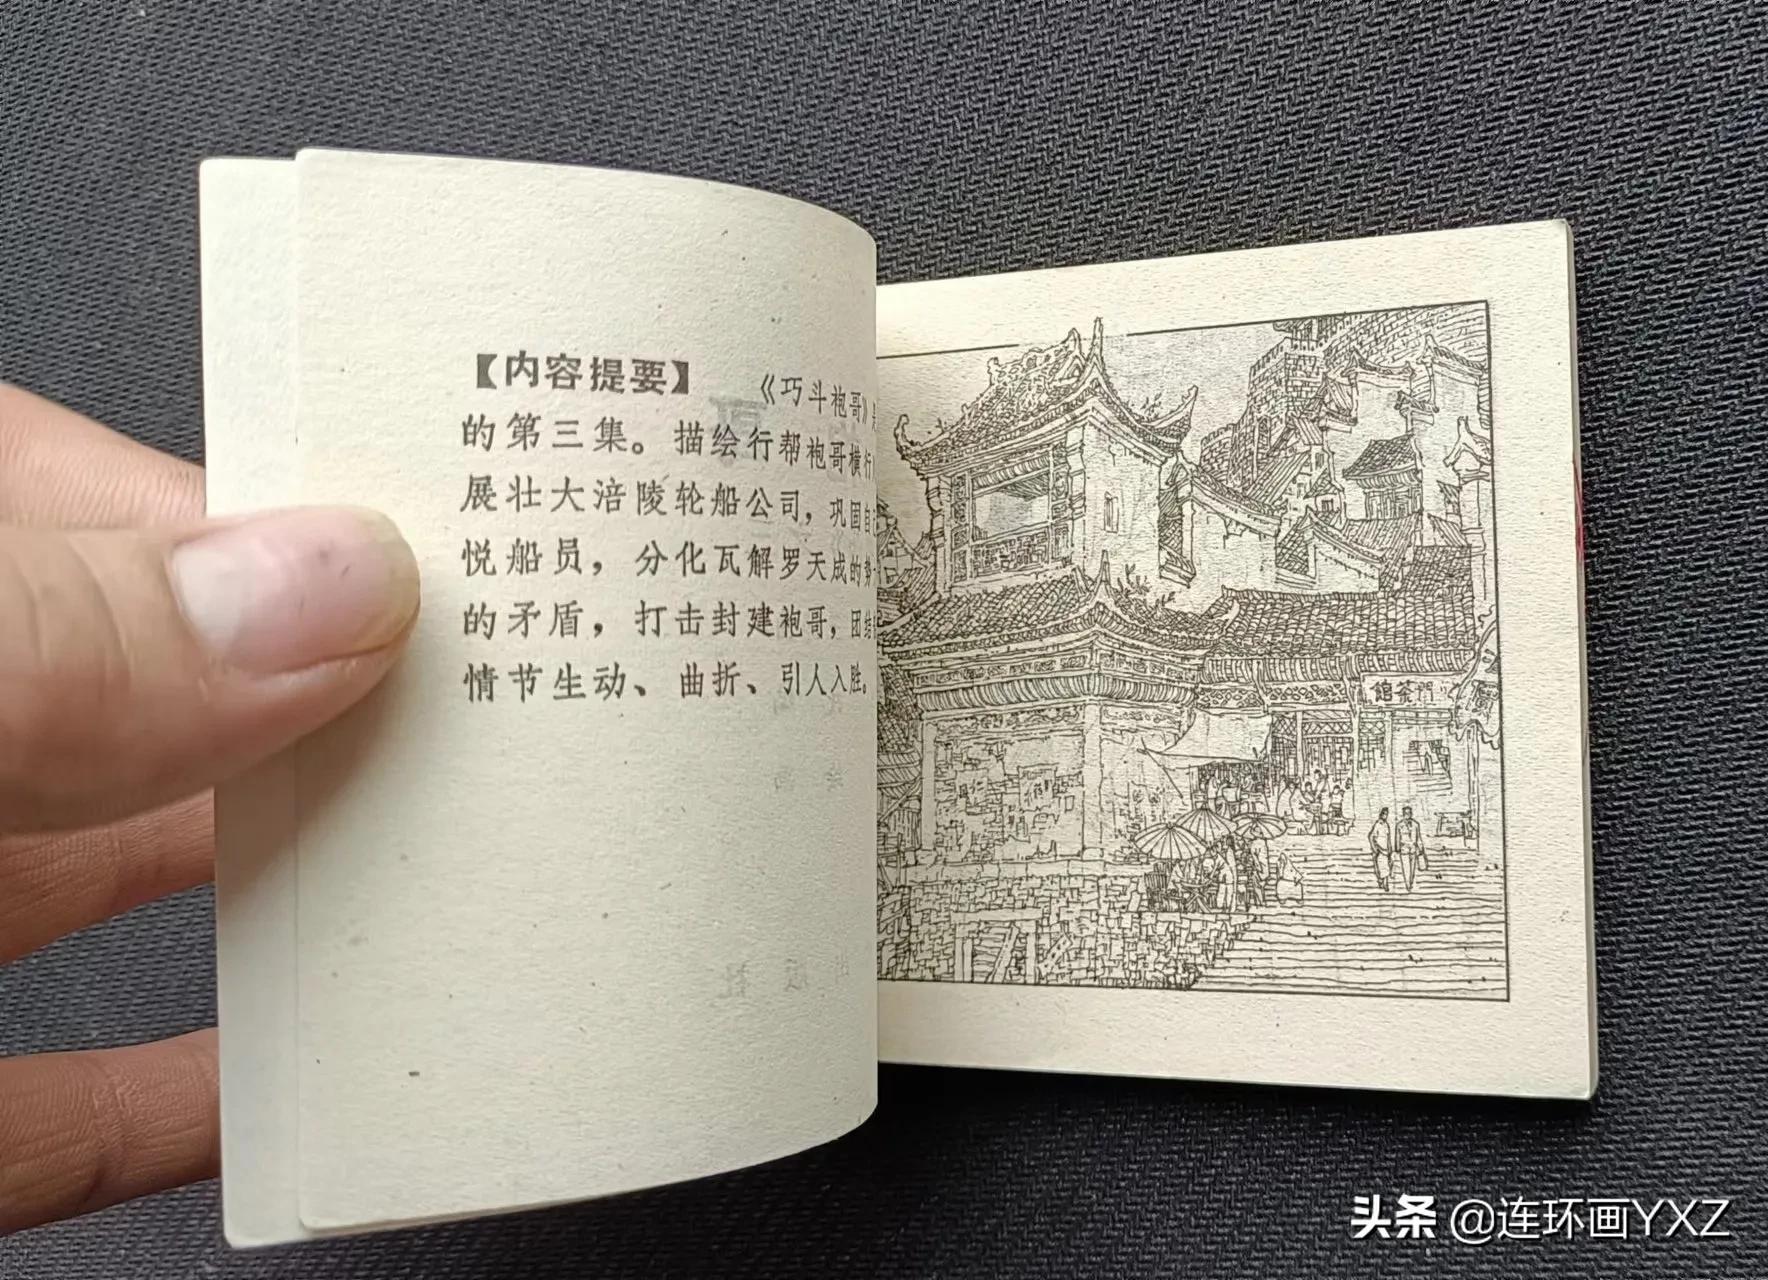 【内容提要】 《巧斗袍哥》是
的第三集。描绘行帮袍哥横行
展壮大涪陵轮船公司，巩固自
悦船员，分化瓦解罗天成的势
的矛盾，打击封建袍哥，团结
情节生动、曲折、引人入胜。
館茶門
头条 @连环画YXZ